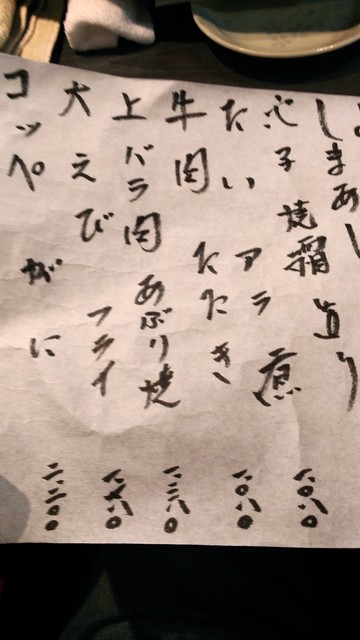 しまあじ
子 焼霜 造り
たい アラ 煮 一、〇八〇
牛肉 たたき 一、〇八〇
上バラ肉 あぶり焼 一、三八〇
大えび フライ
コッペ がに 二、二〇〇